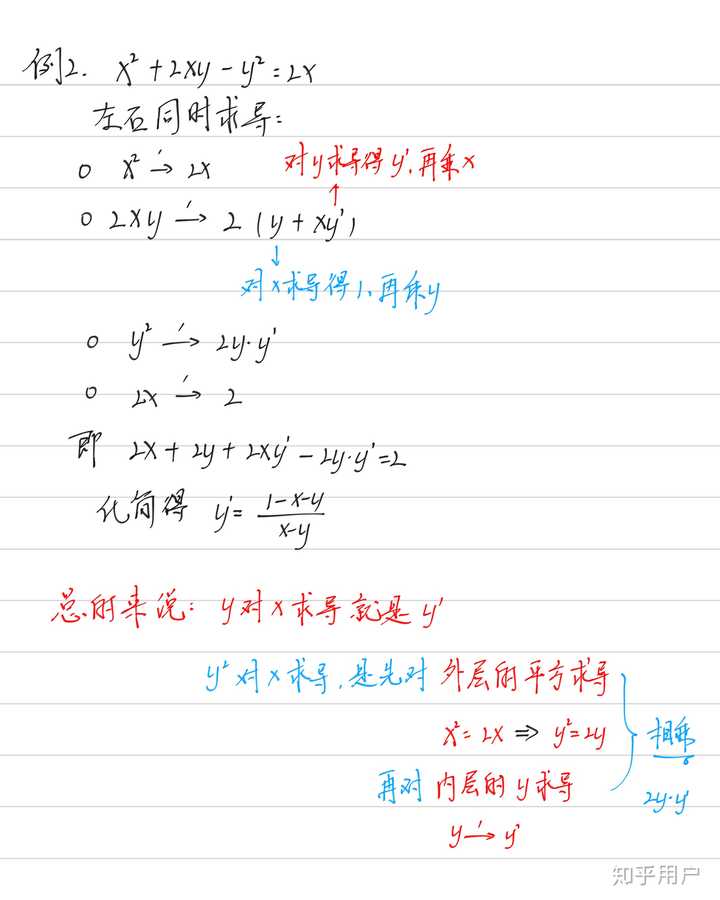 例2. x²+2xy-y²=2x
左右同时求导:
○ x² →′ 2x
对y求导得y′,再乘x
↑
○ 2xy →′ 2(y+xy′)
↓
对x求导得1,再乘y
○ y² →′ 2y·y′
○ 2x →′ 2
即 2x+2y+2xy′-2y·y′=2
化简得 y′=(1-x-y)/(x-y)
总的来说: y对x求导就是y′
y²对x求导,是先对外层的平方求导
x²=2x ⇒ y²=2y
相乘
再对内层的y求导
2y·y′
y →′ y′
知乎用户